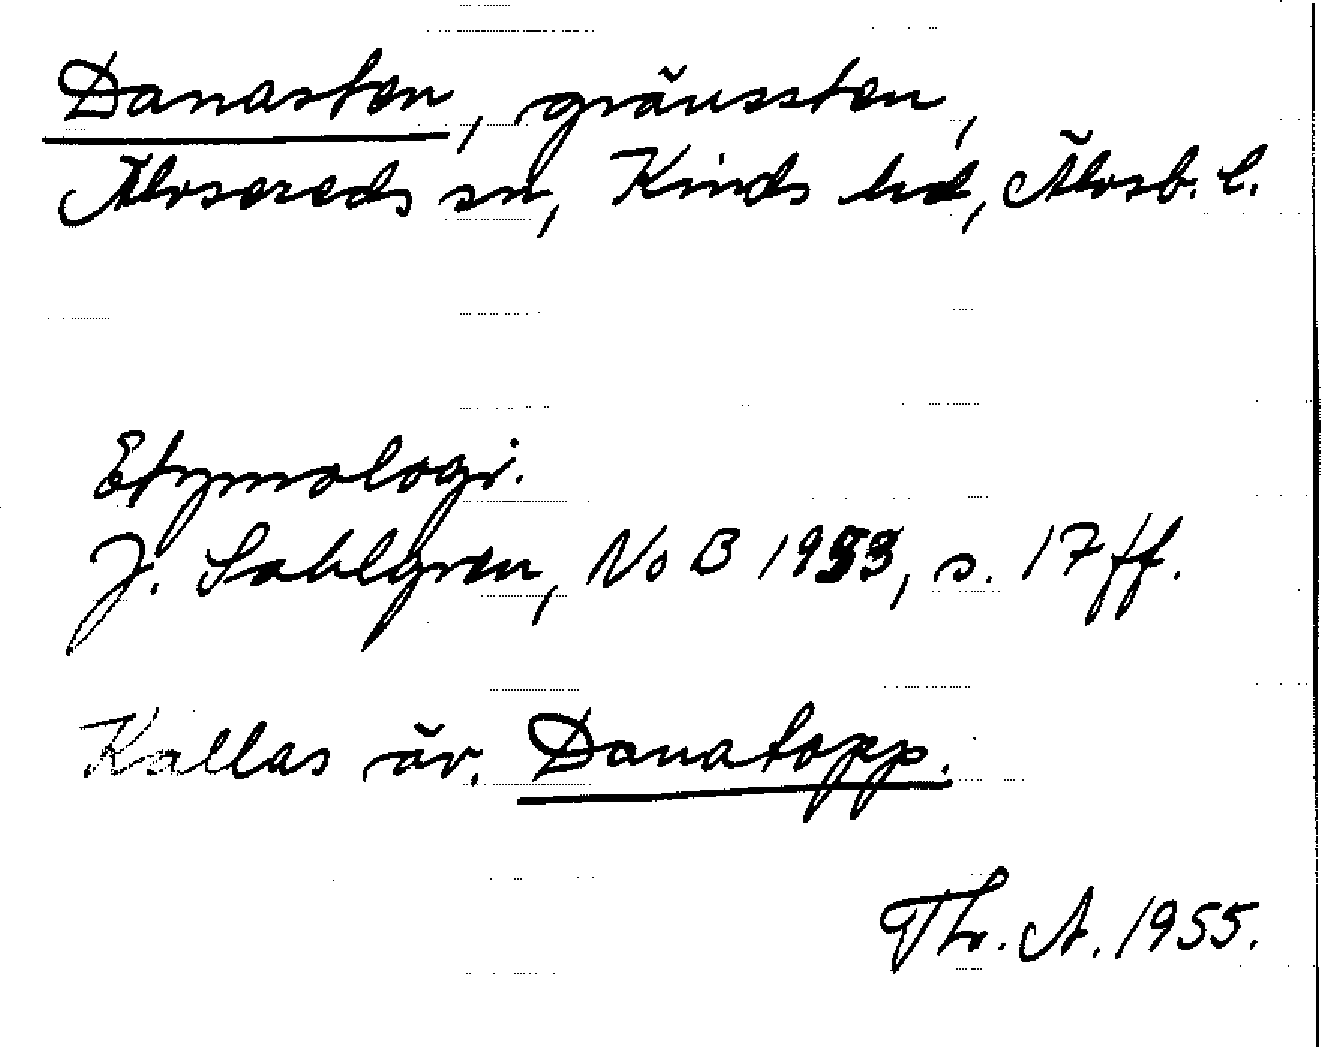 Danasten, gränssten,
Älvsereds sn, Kinds hd, Älvsb. l.
Etymologi.
J. Sahlgren, NoB 1953, s. 17 ff.
Kallas äv. Danatopp.
Th. A. 1955.